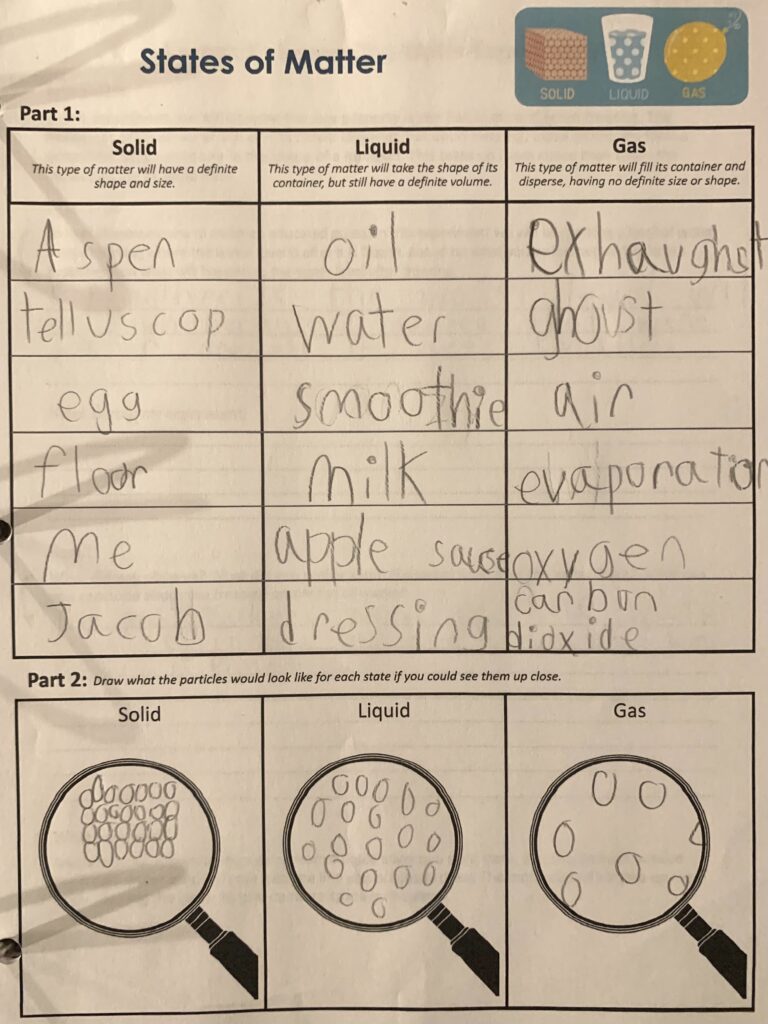 SOLID LIQUID GAS
States of Matter
Part 1:
Solid
This type of matter will have a definite
shape and size.
Liquid
This type of matter will take the shape of its
container, but still have a definite volume.
Gas
This type of matter will fill its container and
disperse, having no definite size or shape.
Aspen oil exhaughst
telluscop water ghoust
egg smoothie air
floor milk evaporation
Me apple sause oxygen
Jacob dressing carbon
dioxide
Part 2: Draw what the particles would look like for each state if you could see them up close.
Solid Liquid Gas